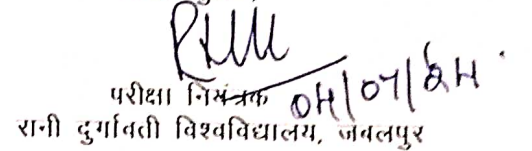 परीक्षा नियंत्रक 04/07/24
रानी दुर्गावती विश्वविद्यालय, जबलपुर